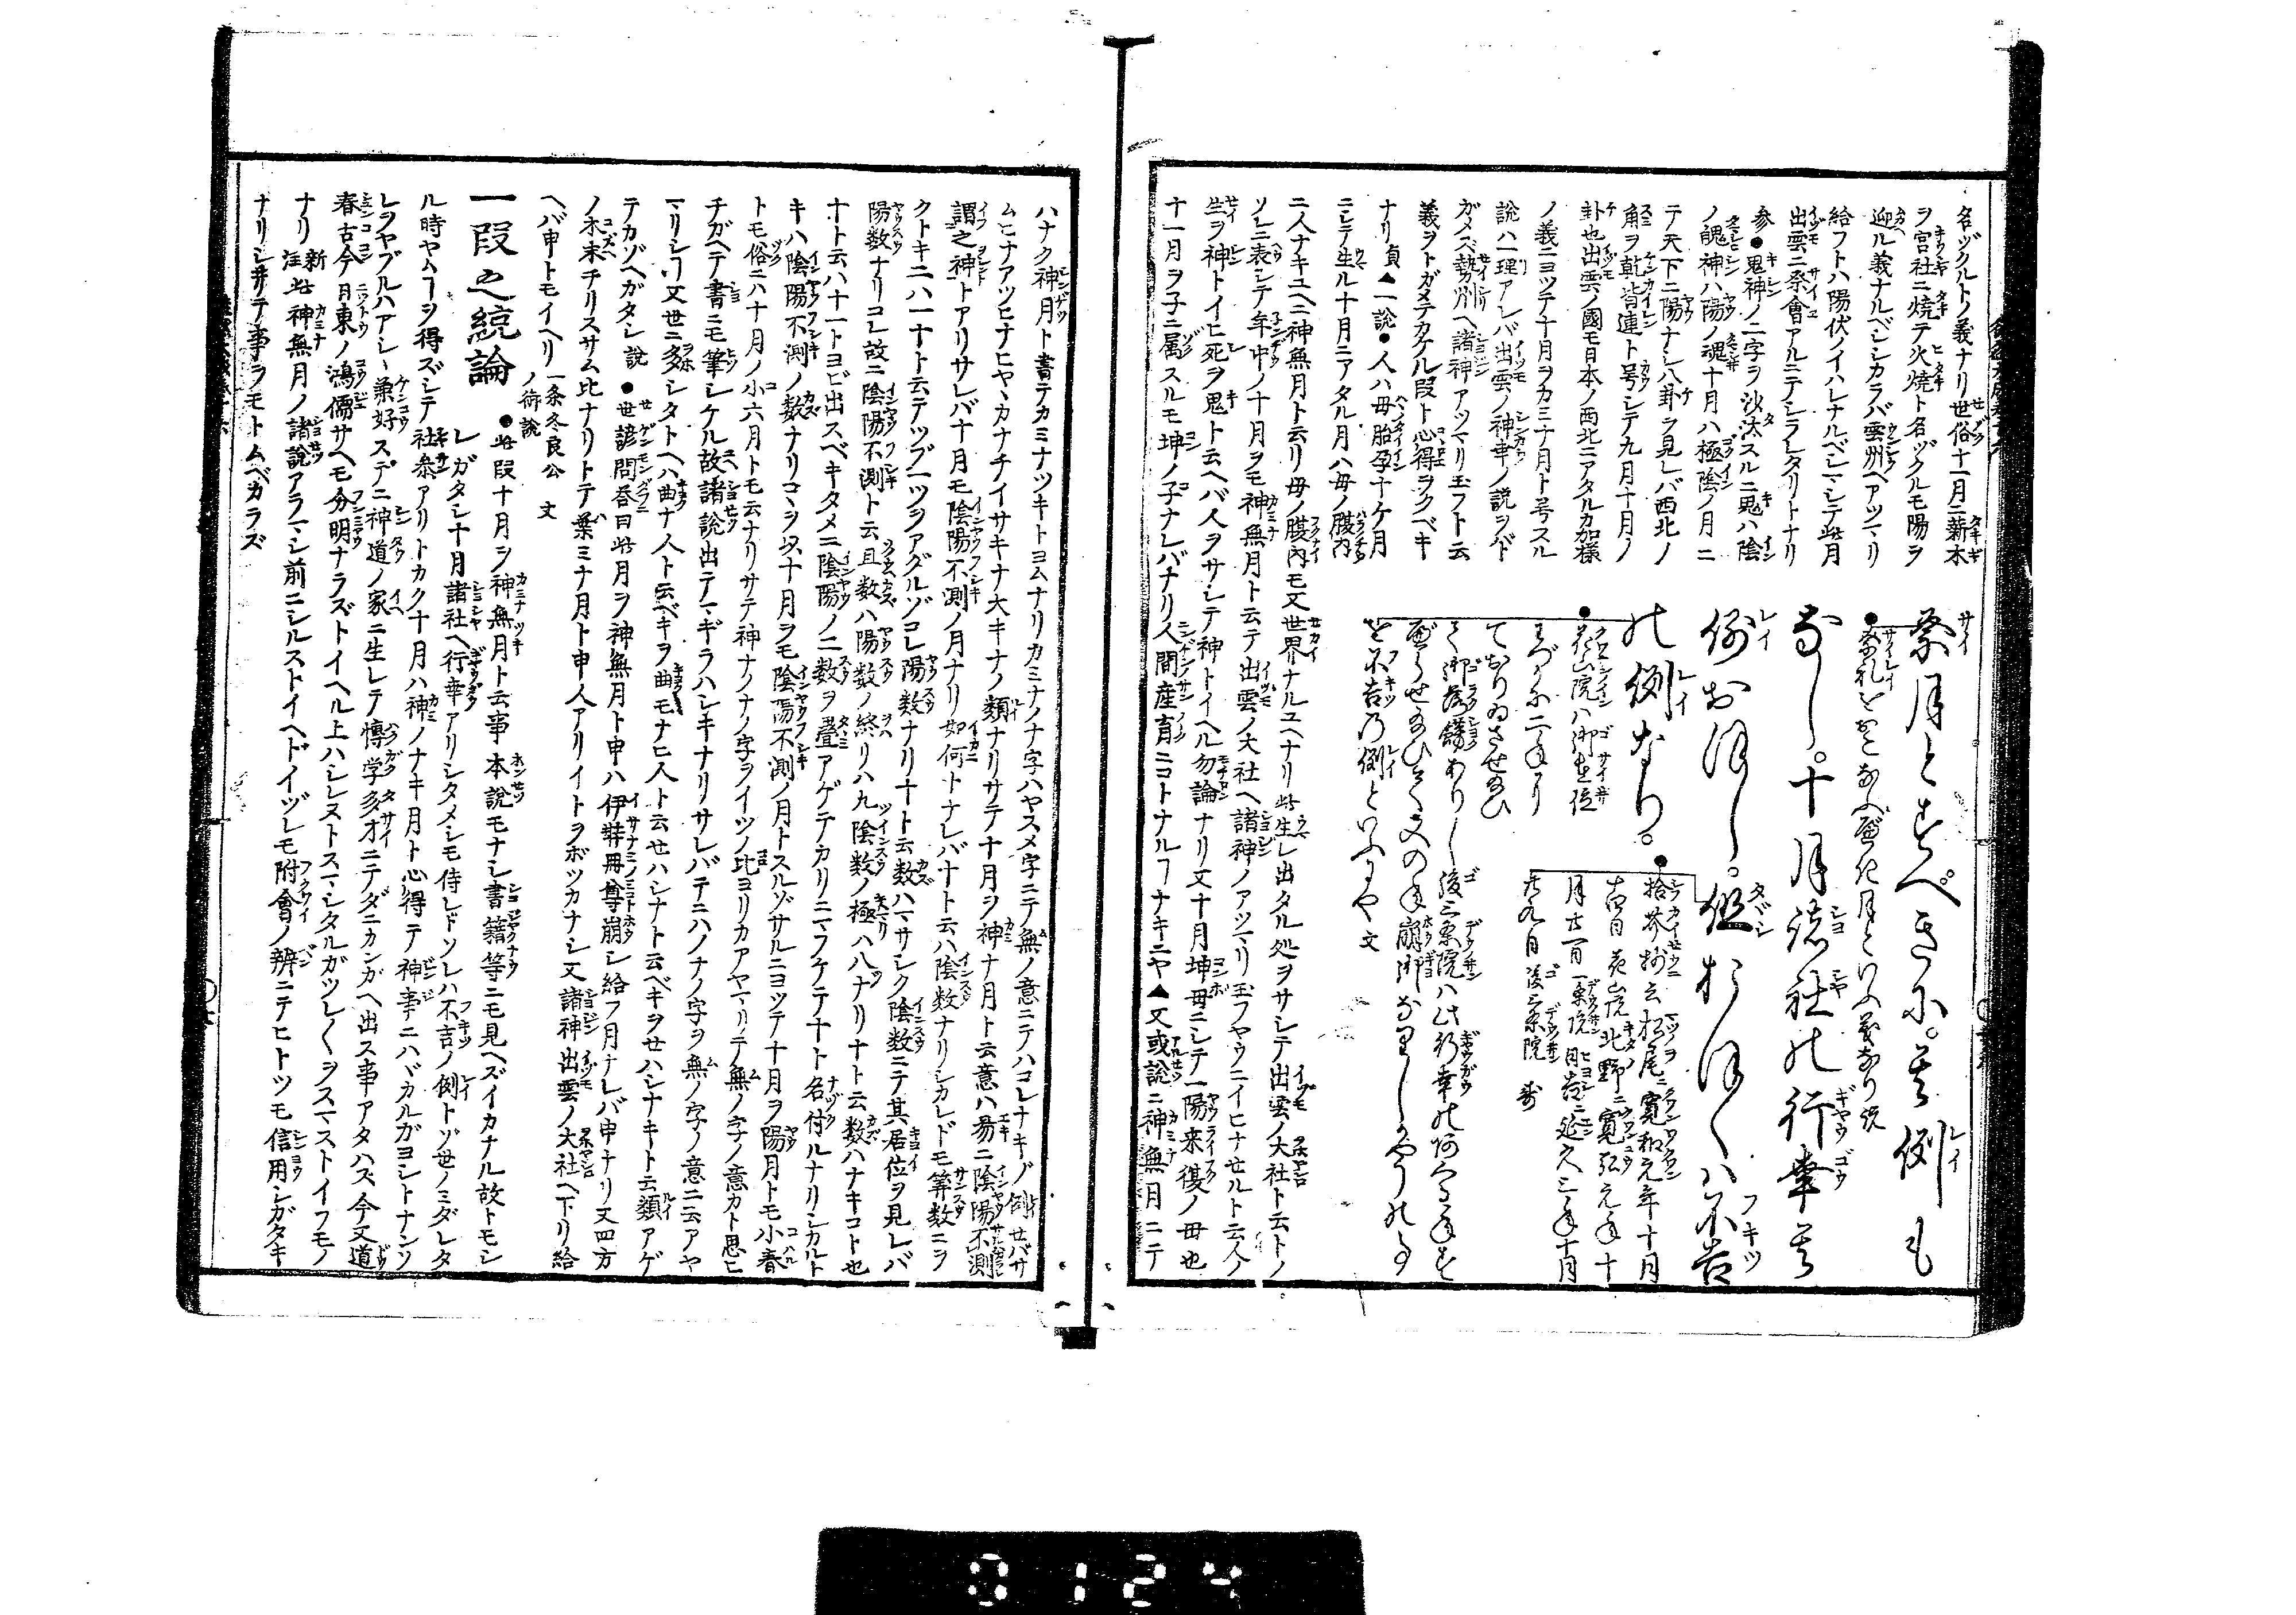 名ヅクルトノ義ナリ世俗十一月ニ薪木
ヲ宮社ニ焼テ火焼ト名ヅクルモ陽ヲ
迎ル義ナルベシシカラバ雲州ヘアツマリ
給フトハ陽伏ノイハレナルベシマシテ此月
出雲ニ祭會アルニテシラレタリトナリ
参●鬼神ノ二字ヲ沙汰スルニ鬼ハ陰
ノ魄神ハ陽ノ魂十月ハ極陰ノ月ニ
テ天下ニ陽ナシ八卦ヲ見レバ西北ノ
角ヲ乾皆連ト号シテ九月十月ノ
卦也出雲ノ國モ日本ノ西北ニアタルカ如樣
ノ義ニヨツテ十月ヲカミナ月ト号スル
説ハ一理アレバ出雲ノ神幸ノ説ヲバト
ガメズ勢州ヘ諸神アツマリ玉フト云
義ヲトガメテカケル段ト心得ヲクベキ
ナリ貞▲一説●人ハ母胎孕十ケ月
ニシテ生ル十月ニアタル月ハ母ノ腹内
ニ人ナキユヘニ神無月ト云リ母ノ腹内モ又世界ナルユヘナリ此生レ出タル処ヲサシテ出雲ノ大社ト云トノ
ソレニ表シテ年中ノ十月ヲモ神無月ト云テ出雲ノ大社ヘ諸神ノアツマリ玉フヤウニイヒナセルト云人ノ
生ヲ神トイヒ死ヲ鬼ト云ヘバ人ヲサシテ神トイヘル勿論ナリ又十月坤毋ニシテ一陽来復ノ毋也
十一月ヲ子ニ属スルモ坤ノ子ナレバナリ人間産育ニコトナルヿナキニヤ▲又或説ニ神無月ニテ
祭月とすべきに。其例も
●祭礼をおこなふべき月といふ義なり
なし。十月諸社の行幸其
例おほし。但おほくハ不吉
の例なり。
●拾芥抄云松尾ニ寛和元年十月
十四日花山院北野ニ寛弘元年十
月廿一日一条院日吉ニ延久三年十月
廿九日後三条院
●花山院ハ御在位
わづかに二年にり
ておりゐさせ給ひ
て御落餝ありし後三条院ハ此行幸の
をせ給ひて又の年崩御なりし
を不吉の例といふにや 文
ハナク神月ト書テカミナツキトヨムナリカミナノナ字ハヤスメ字ニテ無ノ意ニテハコレナキノ例セバサ
ムヒナアツヒナヒヤヽカナチイサキナ大キナノ類ナリサテ十月ヲ神ナ月ト云意ハ易ニ陰陽不測
謂之神トアリサレバ十月モ陰陽不測ノ月ナリ如何トナレバ十ト云ハ陰数ナリシカレドモ筭数ニヲ
クトキニハ一十ト云テツブ一ツヲアグルゾコレ陽数ナリ十ト云数ハマサシク陰数ニテ其居位ヲ見レバ
陽数ナリコレ故ニ陰陽不測ト云且数ハ陽数ノ終リハ九陰数ノ極ハ八ナリ十ト云数ハナキコト也
十ト云ハ十一トヨビ出スベキタメニ陰陽ノ二数ヲ畳アゲテカリニマフケテ十ト名付ルナリシカルト
キハ陰陽不測ノ数ナリコヽヲ以十月ヲモ陰陽不測ノ月トスルゾサルニヨツテ十月ヲ陽月トモ小春
トモ俗ニハ十月ノ小六月トモ云ナリサテ神ナノナノ字ヲイツノ比ヨリカアヤマリテ無ノ字ノ意カト思ヒ
チガヘテ書ニモ筆シケル故諸説出テマギラハシキナリサレバテニハノナノ字ヲ無ノ字ノ意ニ云アヤ
マリシヿ又世ニ多シタトヘハ曲ナ人ト云ベキヲ曲モナヒ人ト云セハシナト云ベキヲセハシナキト云類アゲ
テカゾヘガタシ説●世諺問答曰此月ヲ神無月ト申ハ伊弉冊尊崩シ給フ月ナレバ申ナリ又四方
ノ木末チリスサム比ナリトテ葉ミナ月ト申人アリイトヲボツカナシ又諸神出雲ノ大社ヘ下リ給
ヘバ申トモイヘリ一条冬良公ノ御説 文
一段之統論 ●此段十月ヲ神無月ト云事本説モナシ書籍等ニモ見ヘズイカナル故トモシ
レガタシ十月諸社ヘ行幸アリシタメシモ侍レドソレハ不吉ノ例トゾ世ノミダレタ
ル時ヤムヿヲ得ズシテ社参アリトカク十月ハ神ノナキ月ト心得テ神事ニハバカルガヨシトナンソ
レヲヤブルハアシヽ兼好スデニ神道ノ家ニ生レテ博学多才ニテダニカンガヘ出ス事アタハズ今又道
春古今月東ノ鴻儒サヘモ分明ナラズトイヘル上ハシレヌトスマシタルガツレ〱ヲスマストイフモノ
ナリ 新註 此神無月ノ諸説アラマシ前ニシルストイヘドイヅレモ附會ノ辨ニテヒトツモ信用シガタキ
ナリシ井テ事ヲモトムベカラズ
3124